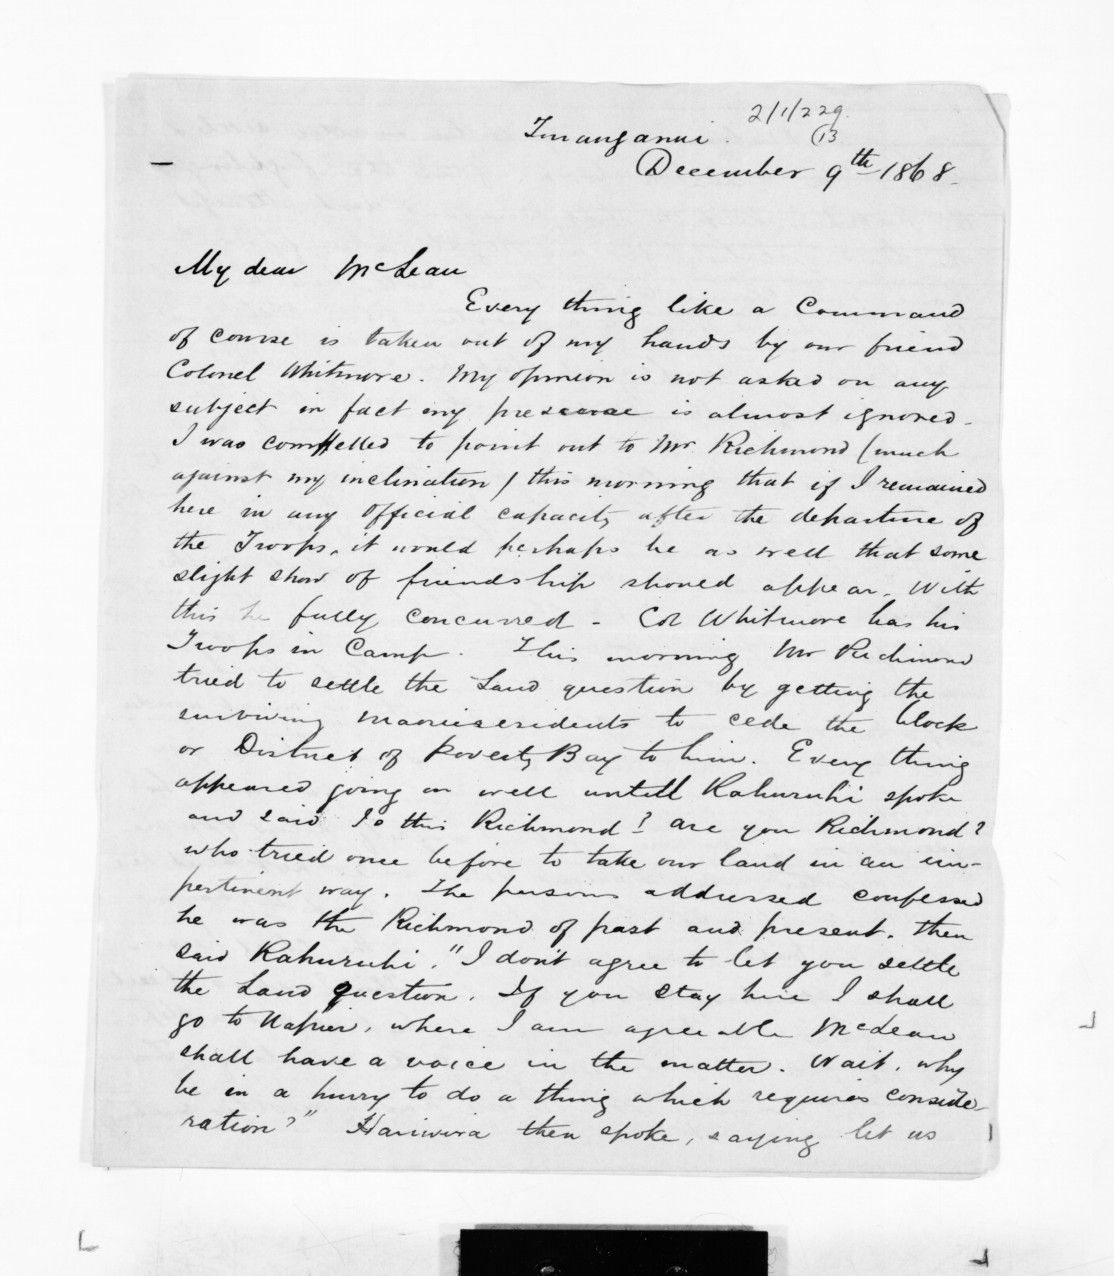 2/1/229.
13
Turanganui.
December 9th 1868.
My dear McLean
Every thing like a Command
of course is taken out of my hands by our friend
Colonel Whitmore. My opinion is not asked on any
subject in fact my presence is almost ignored.
I was compelled to point out to Mr. Richmond (much
against my inclination) this morning that if I remained
here in any official capacity after the departure of
the Troops, it would perhaps be as well that some
slight show of friendship should appear. With
this he fully concurred - Col Whitmore has his
Troops in Camp. This morning Mr Richmond
tried to settle the Land question by getting the
surviving maories residents to cede the block
or District of Poverty Bay to him. Every thing
appeared going on well untill Kahuruhi spoke
and said Is this Richmond? are you Richmond?
who tried once before to take our land in an im-
pertinent way. The persons addressed confessed
he was the Richmond of past and present. then
said Kahuruhi. "I don't agree to let you settle
the Land question. If you stay here I shall
go to Napier, where I am agreeable McLean
shall have a voice in the matter. Wait, why
be in a hurry to do a thing which requires conside-
ration?" Hariwira then spoke, saying let us